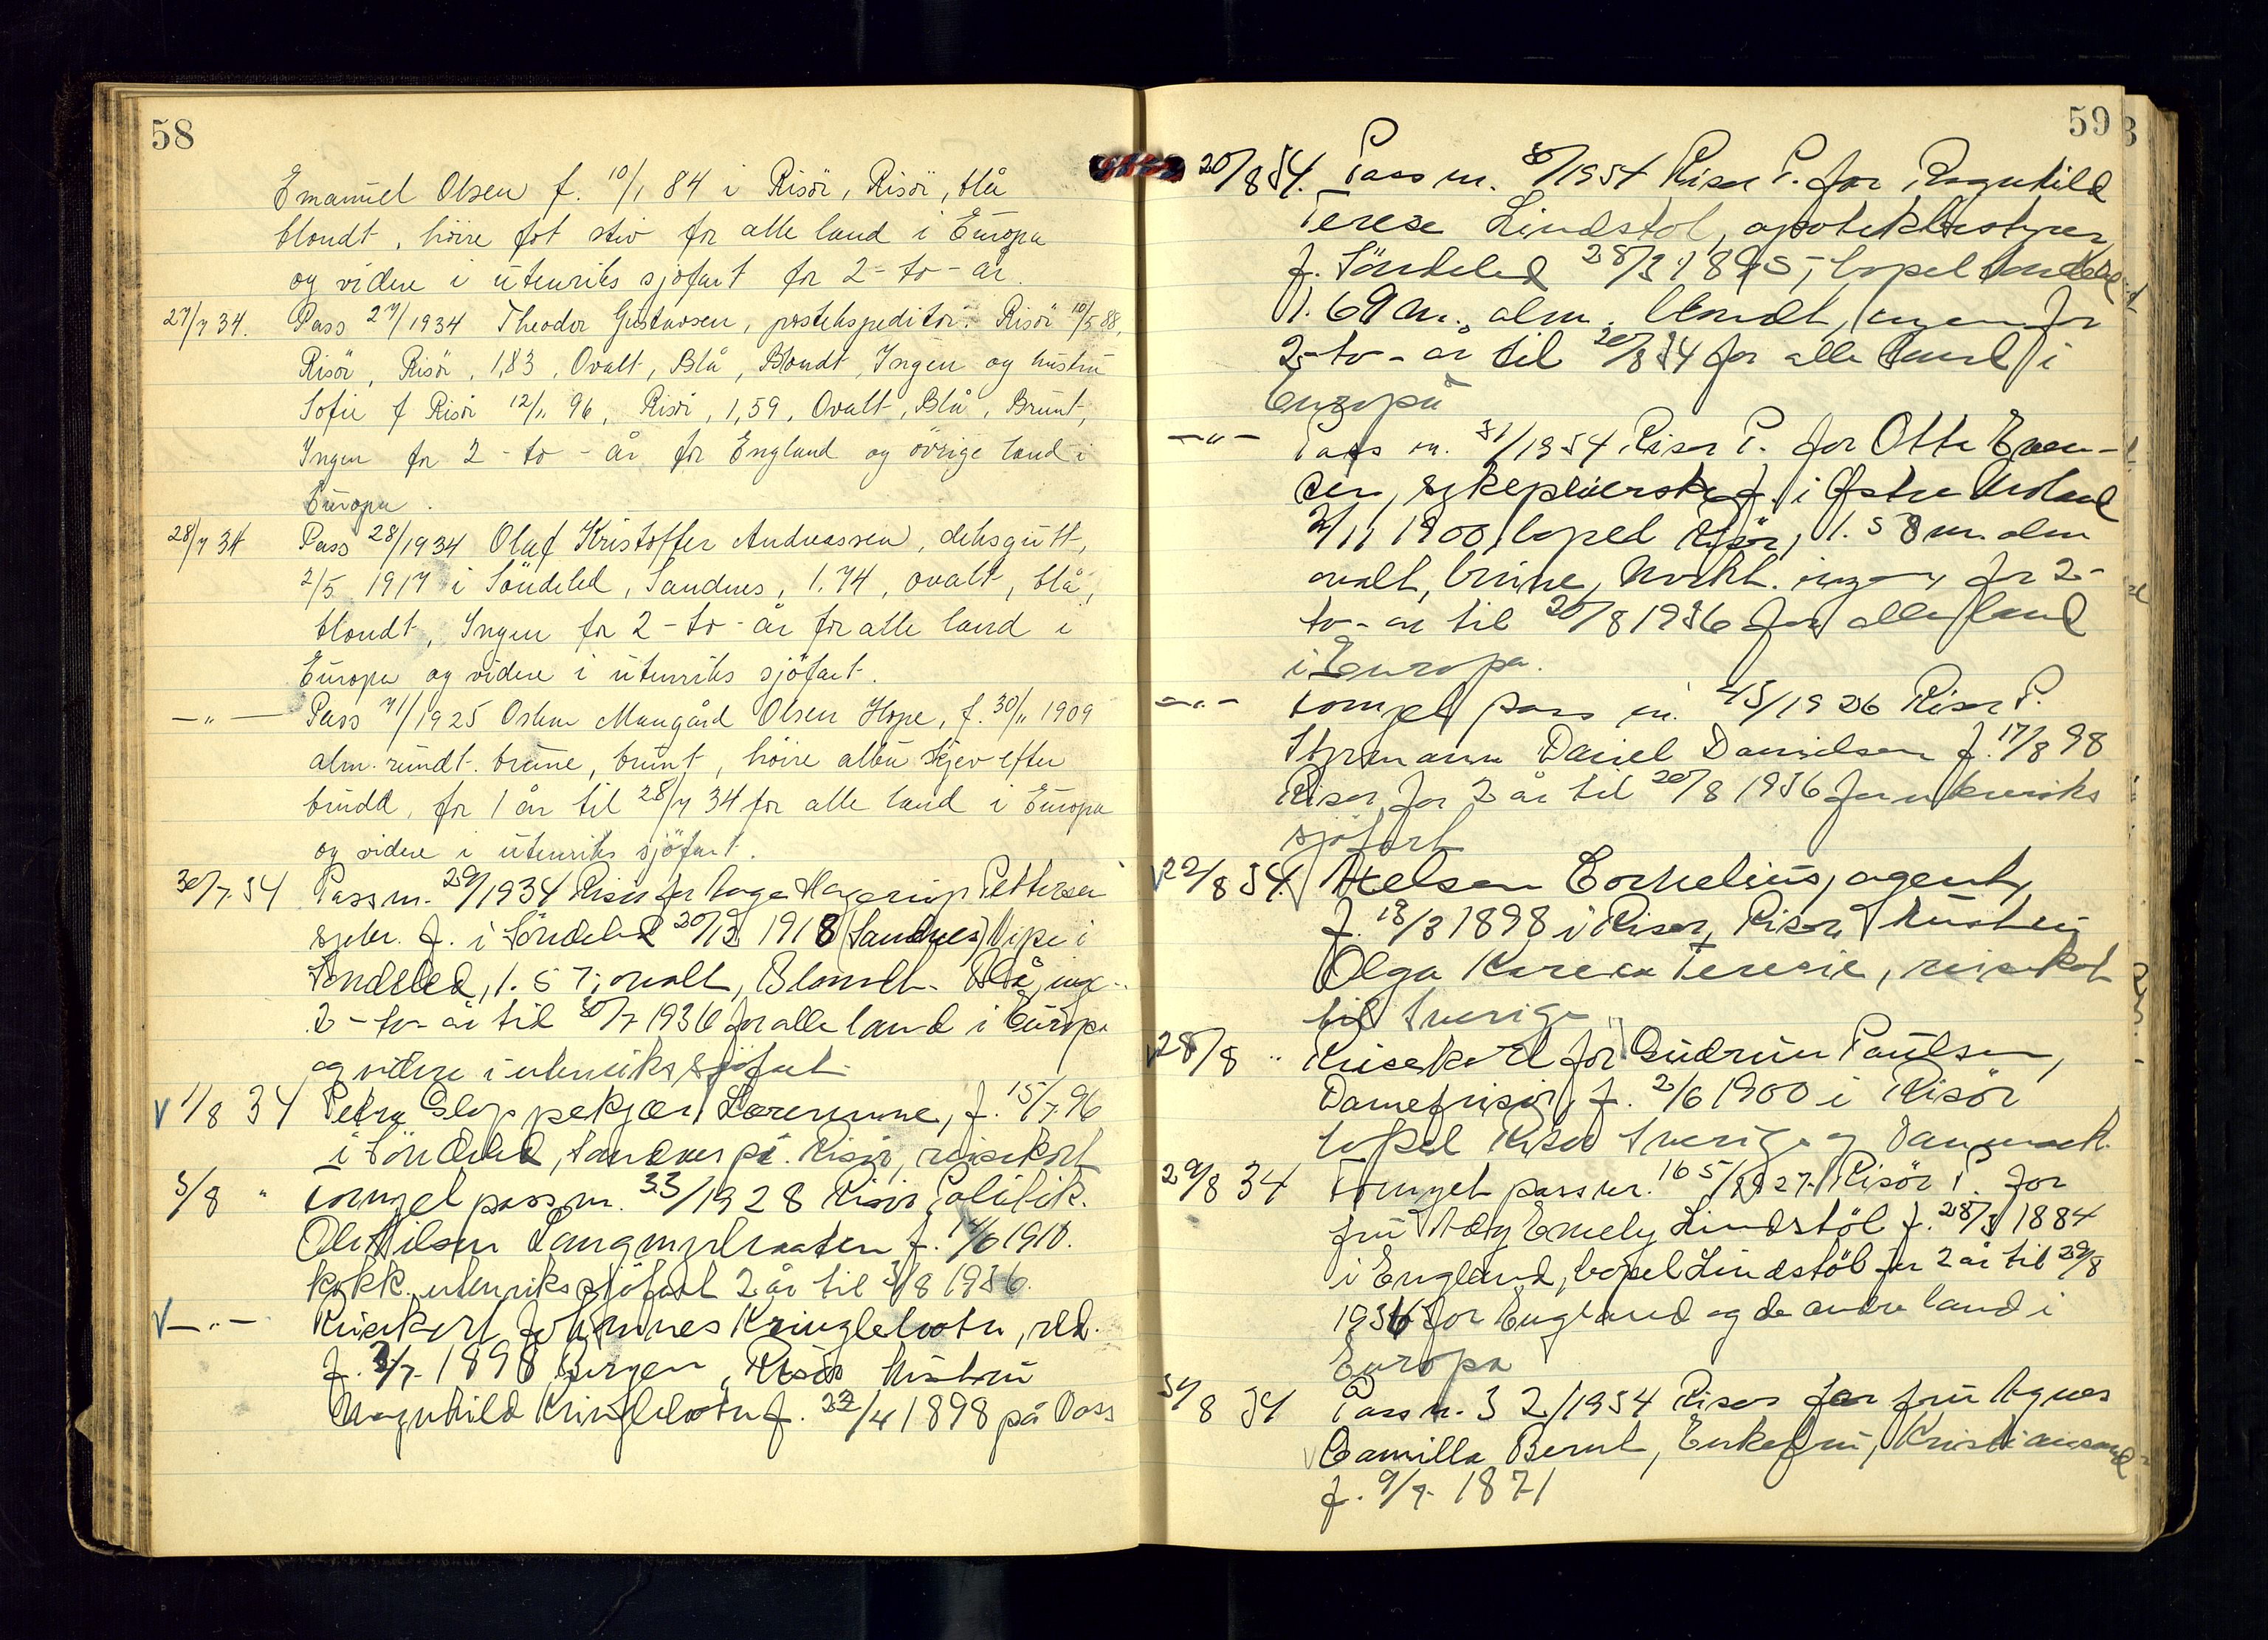 58
Emanuel Olsen f. 10/1 84 i Risör, Risör, blå
blondt, höire fot stiv for alle land i Europa
og videre i utenriks sjöfart for 2-to-år.
27/7 34. Pass 27/1934 Theodor Gustavsen, postekspeditör. Risör 10/5 88,
Risör, Risör, 1,83, Ovalt, Blå, Blondt, Ingen og hustru
Sofie f Risör 12/11 96, Risör, 1,59, Ovalt, Blå, Brunt,
Ingen for 2-to-år for England og övrige land i
Europa.
28/7 34 Pass 28/1934 Olaf Kristoffer Andreassen, deksgutt,
2/5 1917 i Söndeled, Sandnes, 1.74, ovalt, blå,
blondt, Ingen for 2-to-år for alle land i
Europa og videre i utenriks sjöfart.
—"— Pass 71/1925 Osten Mangård Olsen Hope, f. 30/11 1909
alm. rundt. brune, brunt, höire albu skjev efter
brudd, for 1 år til 28/7 34 for alle land i Europa
og videre i utenriks sjöfart.
30/7. 34 Pass nr. 29/1934 Risör for Aage Hagerup Pettersen
sjøm. f. i Söndeled 20/12 1918 (Sandnes) Vipe i
Söndeled, 1.57, ovalt, Blondt. Blå, ing..
2-to-år til 30/7 1936 for alle land i Europa
og videre i utenriks sjöfart
1/8 34 Petra Gloppekjær Lærerinne, f. 15/7. 96
i Söndeled, Sandnes pr. Risör, reisekort
3/8 " Fornyet pass nr. 33/1928 Risör Politik.
Ole Nilsen Langmyrbraaten f. 14/6 1910.
kokk. utenriks sjöfart 2 år til 3/8 1936.
—"— Reisekort Johannes Kringlebotn, red.
f. 2/7. 1898 Bergen, Risör hustru
Magnhild Kringlebotn f. 22/4 1898 på Voss
59
20/8 34. Pass nr. 30/1934 Risør P. for Ragnhild
Terese Lindstøl, apotekbestyrer,
f. Söndeled 28/3 1895, bopel Söndeled
1.69 m. alm. blondt, ingen for
2-to-år til 20/8 34 for alle land i
Europa
—"— Pass nr. 31/1934 Risør P. for Otte Even-
sen, sykepleierske f. i Østre Moland
2/11 1900, bopel Risör, 1.58 m. alm
ovalt, brune, mörkt. ingen, for 2-
to-år til 20/8 1936 for alle land
i Europa.
—"— Fornyet pass nr. 45/1926 Risør P.
Styrmann Daniel Danielsen f. 17/8 98
Risør for 2 år til 20/8 1936 for utenriks
sjöfart
22/8 34. Axelsen Cornelius, agent,
f. 18/3 1898 i Risør, Risør, hustru
Olga Karen Teresie, reisekort
til Sverige
28/8 " Reisekort for Gudrun Paulsen,
Damefrisör, f. 2/6 1900 i Risör
bopel Risør Sverige og Danmark.
29/8 34 Fornyet pass nr. 165/1927. Risör P. for
fru Ady Emely Lindstöl f. 28/3 1884
i England, bopel Lindstöl for 2 år til 29/8
1936 for England og de andre land i
Europa
31/8 34 Pass nr. 32/1934 Risør for fru Agnes
Camilla Bernt, Enkefru, Kristiansand
f. 9/9. 1871